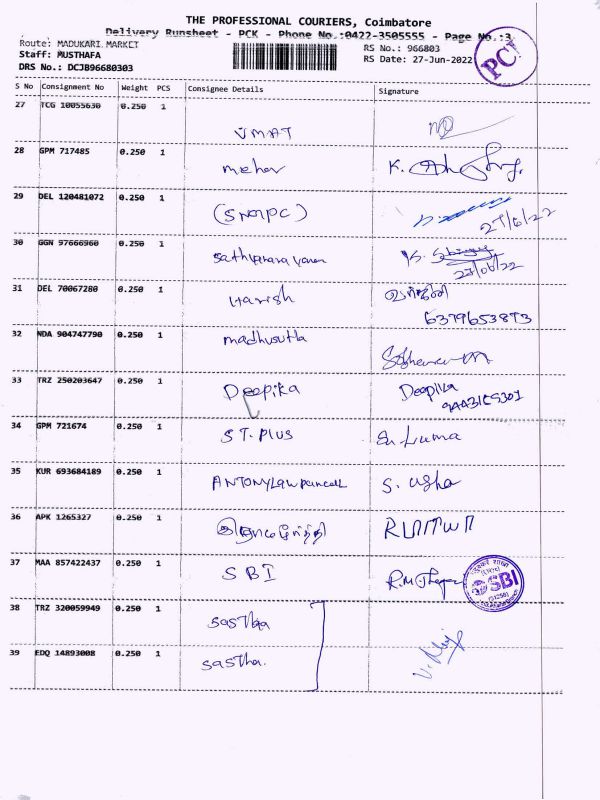 THE PROFESSIONAL COURIERS, Coimbatore
Delivery Runsheet - PCK - Phone No.:0422-3505555 - Page No.:3
Route: MADUKARI MARKET
RS No.: 966803
Staff: MUSTHAFA
RS Date: 27-Jun-2022
DRS No.: DCJB96680303
PC!
S No Consignment No Weight PCS Consignee Details Signature
27 TCG 10055630 0.250 1 UMAT
28 GPM 717485 0.250 1 Mehar K.
29 DEL 120481072 0.250 1 27/6/22
30 GGN 97666960 0.250 1 Sathyanarayanan K. 27/06/22
31 DEL 70067280 0.250 1 Harish
6379653873
32 NDA 904747790 0.250 1 madhusutha
33 TRZ 250203647 0.250 1 Deepika Deepika
34 GPM 721674 0.250 1 S T. PLUS
35 KUR 693684189 0.250 1 ANTONYLAW S. Usha
36 APK 1265327 0.250 1
37 MAA 857422437 0.250 1 SBI R.M SBI
38 TRZ 320059949 0.250 1 sastha
39 EDQ 14893008 0.250 1 sastha.